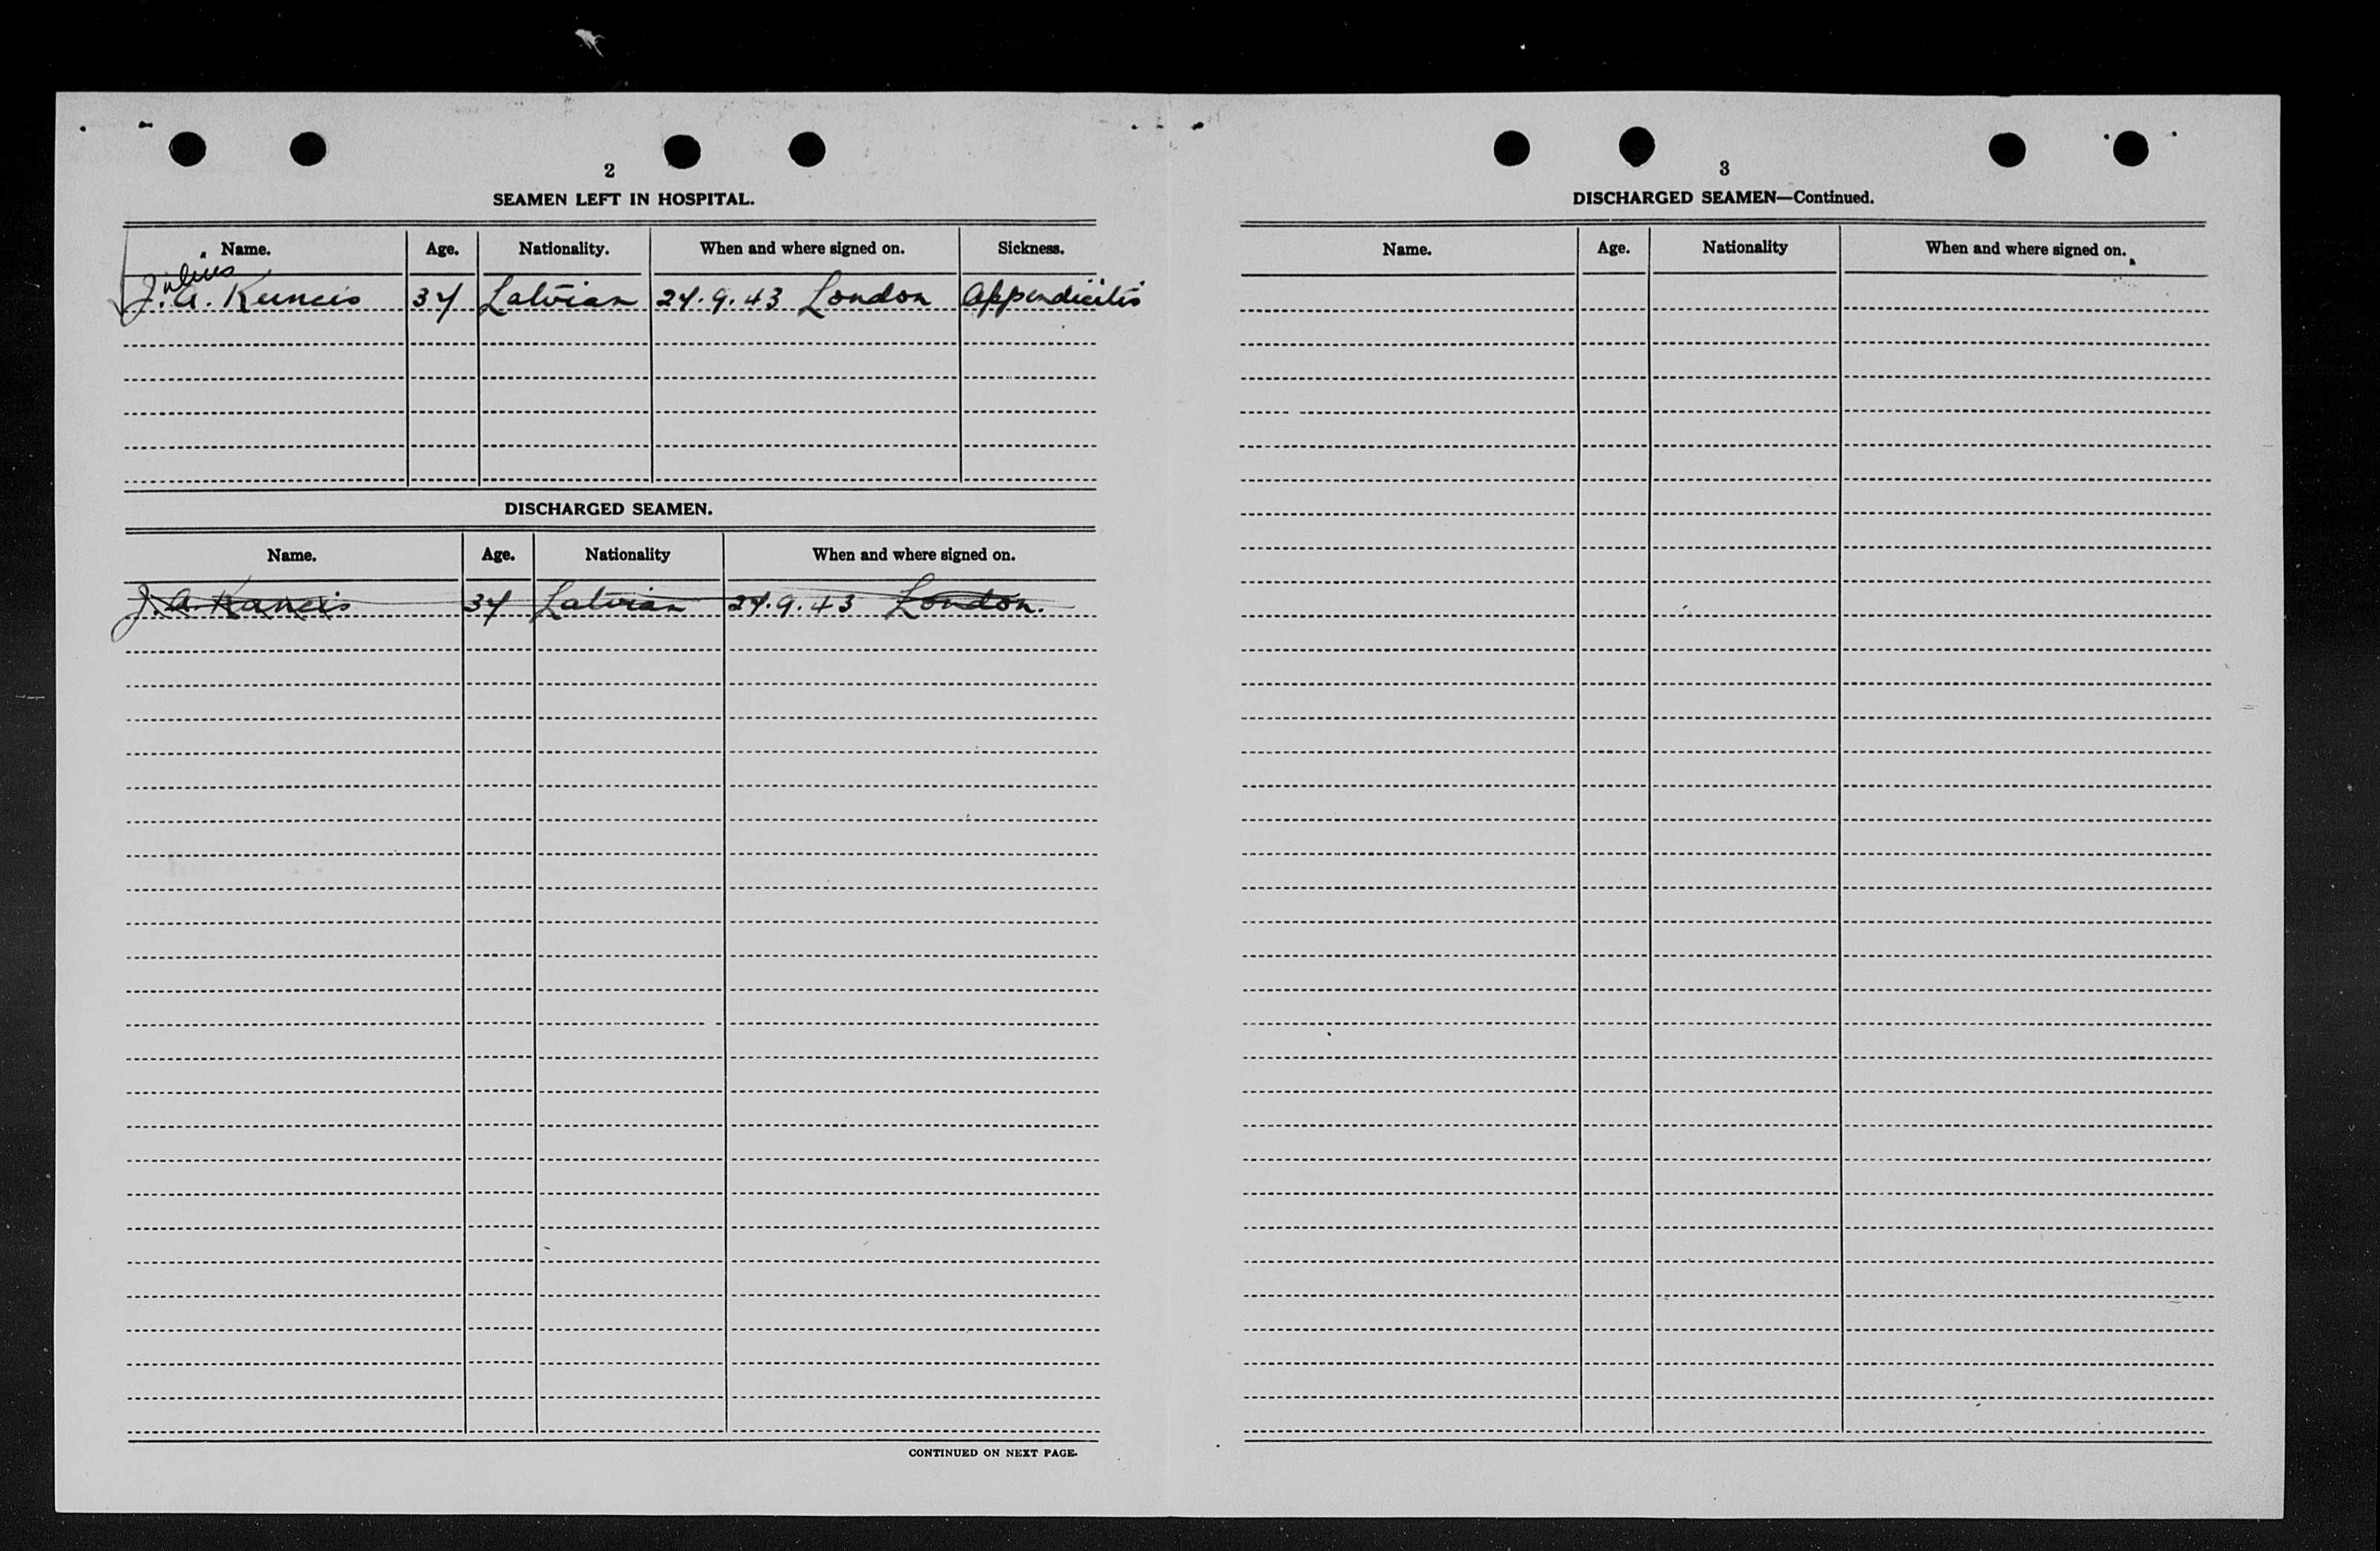 2
SEAMEN LEFT IN HOSPITAL.
Name. Age. Nationality. When and where signed on. Sickness.
Julius
J. A. Kuncis 37 Latvian 27.9.43 London Appendicitis
DISCHARGED SEAMEN.
Name. Age. Nationality When and where signed on.
J. A. Kuncis 37 Latvian 27.9.43 London.
CONTINUED ON NEXT PAGE.
3
DISCHARGED SEAMEN—Continued.
Name. Age. Nationality When and where signed on.